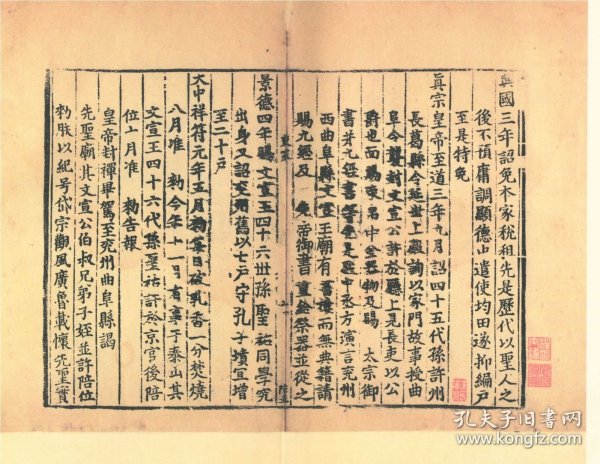 興國三年詔免本家稅租先是歷代以聖人之
後不預庸調顯德中遣使均田遂抑編戶
至是特免
真宗皇帝至道三年九月詔四十五代孫許州
長葛縣令延世上殿詢以家門故事授曲
阜令襲封文宣公許於廳上見長吏以公
爵也面賜束帛中金器物及賜 太宗御
書并九經書
西曲阜縣文宣王廟有書樓而無典籍請
賜九經及 先帝御書 祭器並從之
景德四年賜文宣王四十六世孫聖祐同學究
出身又詔兗州舊以七戶守孔子墳宜增
至二十戶
大中祥符元年五月 每日破乳香一分焚燒
八月准 勑今年十一月有事于泰山其
文宣王四十六代孫聖祐許於京官後陪
位十月准 勑告報
皇帝封禪畢駕至兗州曲阜縣謁
先聖廟其文宣公伯叔兄弟子姪並許陪位
勑朕以紀号岱宗觀風廣魯載懷先聖實
孔夫子旧书网
www.kongfz.com